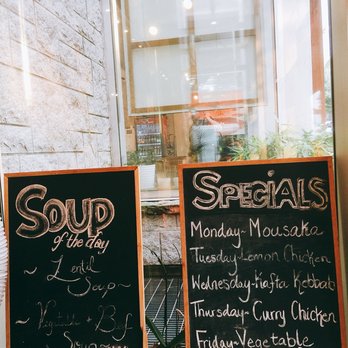 SOUP
of the day
~ Lentil
Soup ~
~ Vegetable + Beef
Soup
SPECIALS
Monday~Mousaka
Tuesday~Lemon Chicken
Wednesday~Kafta Kebbab
Thursday~Curry Chicken
Friday~Vegetable